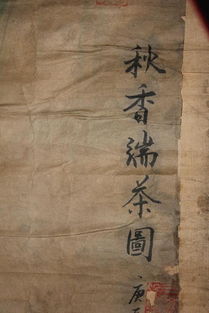 秋香端茶圖
庚